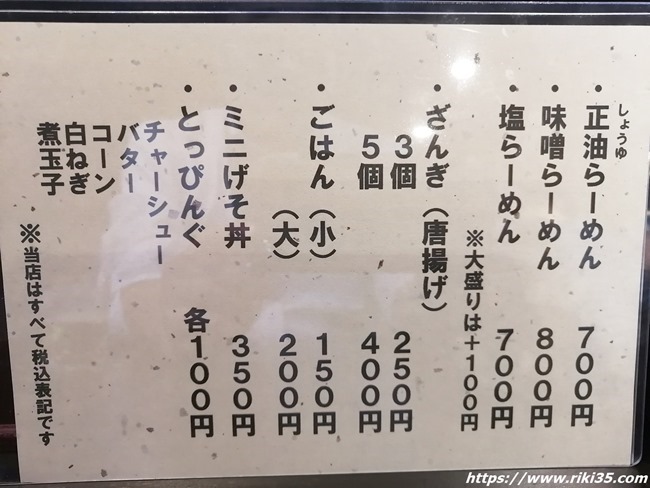 しょうゆ
・正油らーめん 700円
・味噌らーめん 800円
・塩らーめん 700円
※大盛りは+100円
・ざんぎ(唐揚げ)
3個 250円
5個 400円
・ごはん(小) 150円
(大) 200円
・ミニげそ丼 350円
・とっぴんぐ 各100円
チャーシュー
バター
コーン
白ねぎ
煮玉子
※当店はすべて税込表記です
https://www.riki35.com